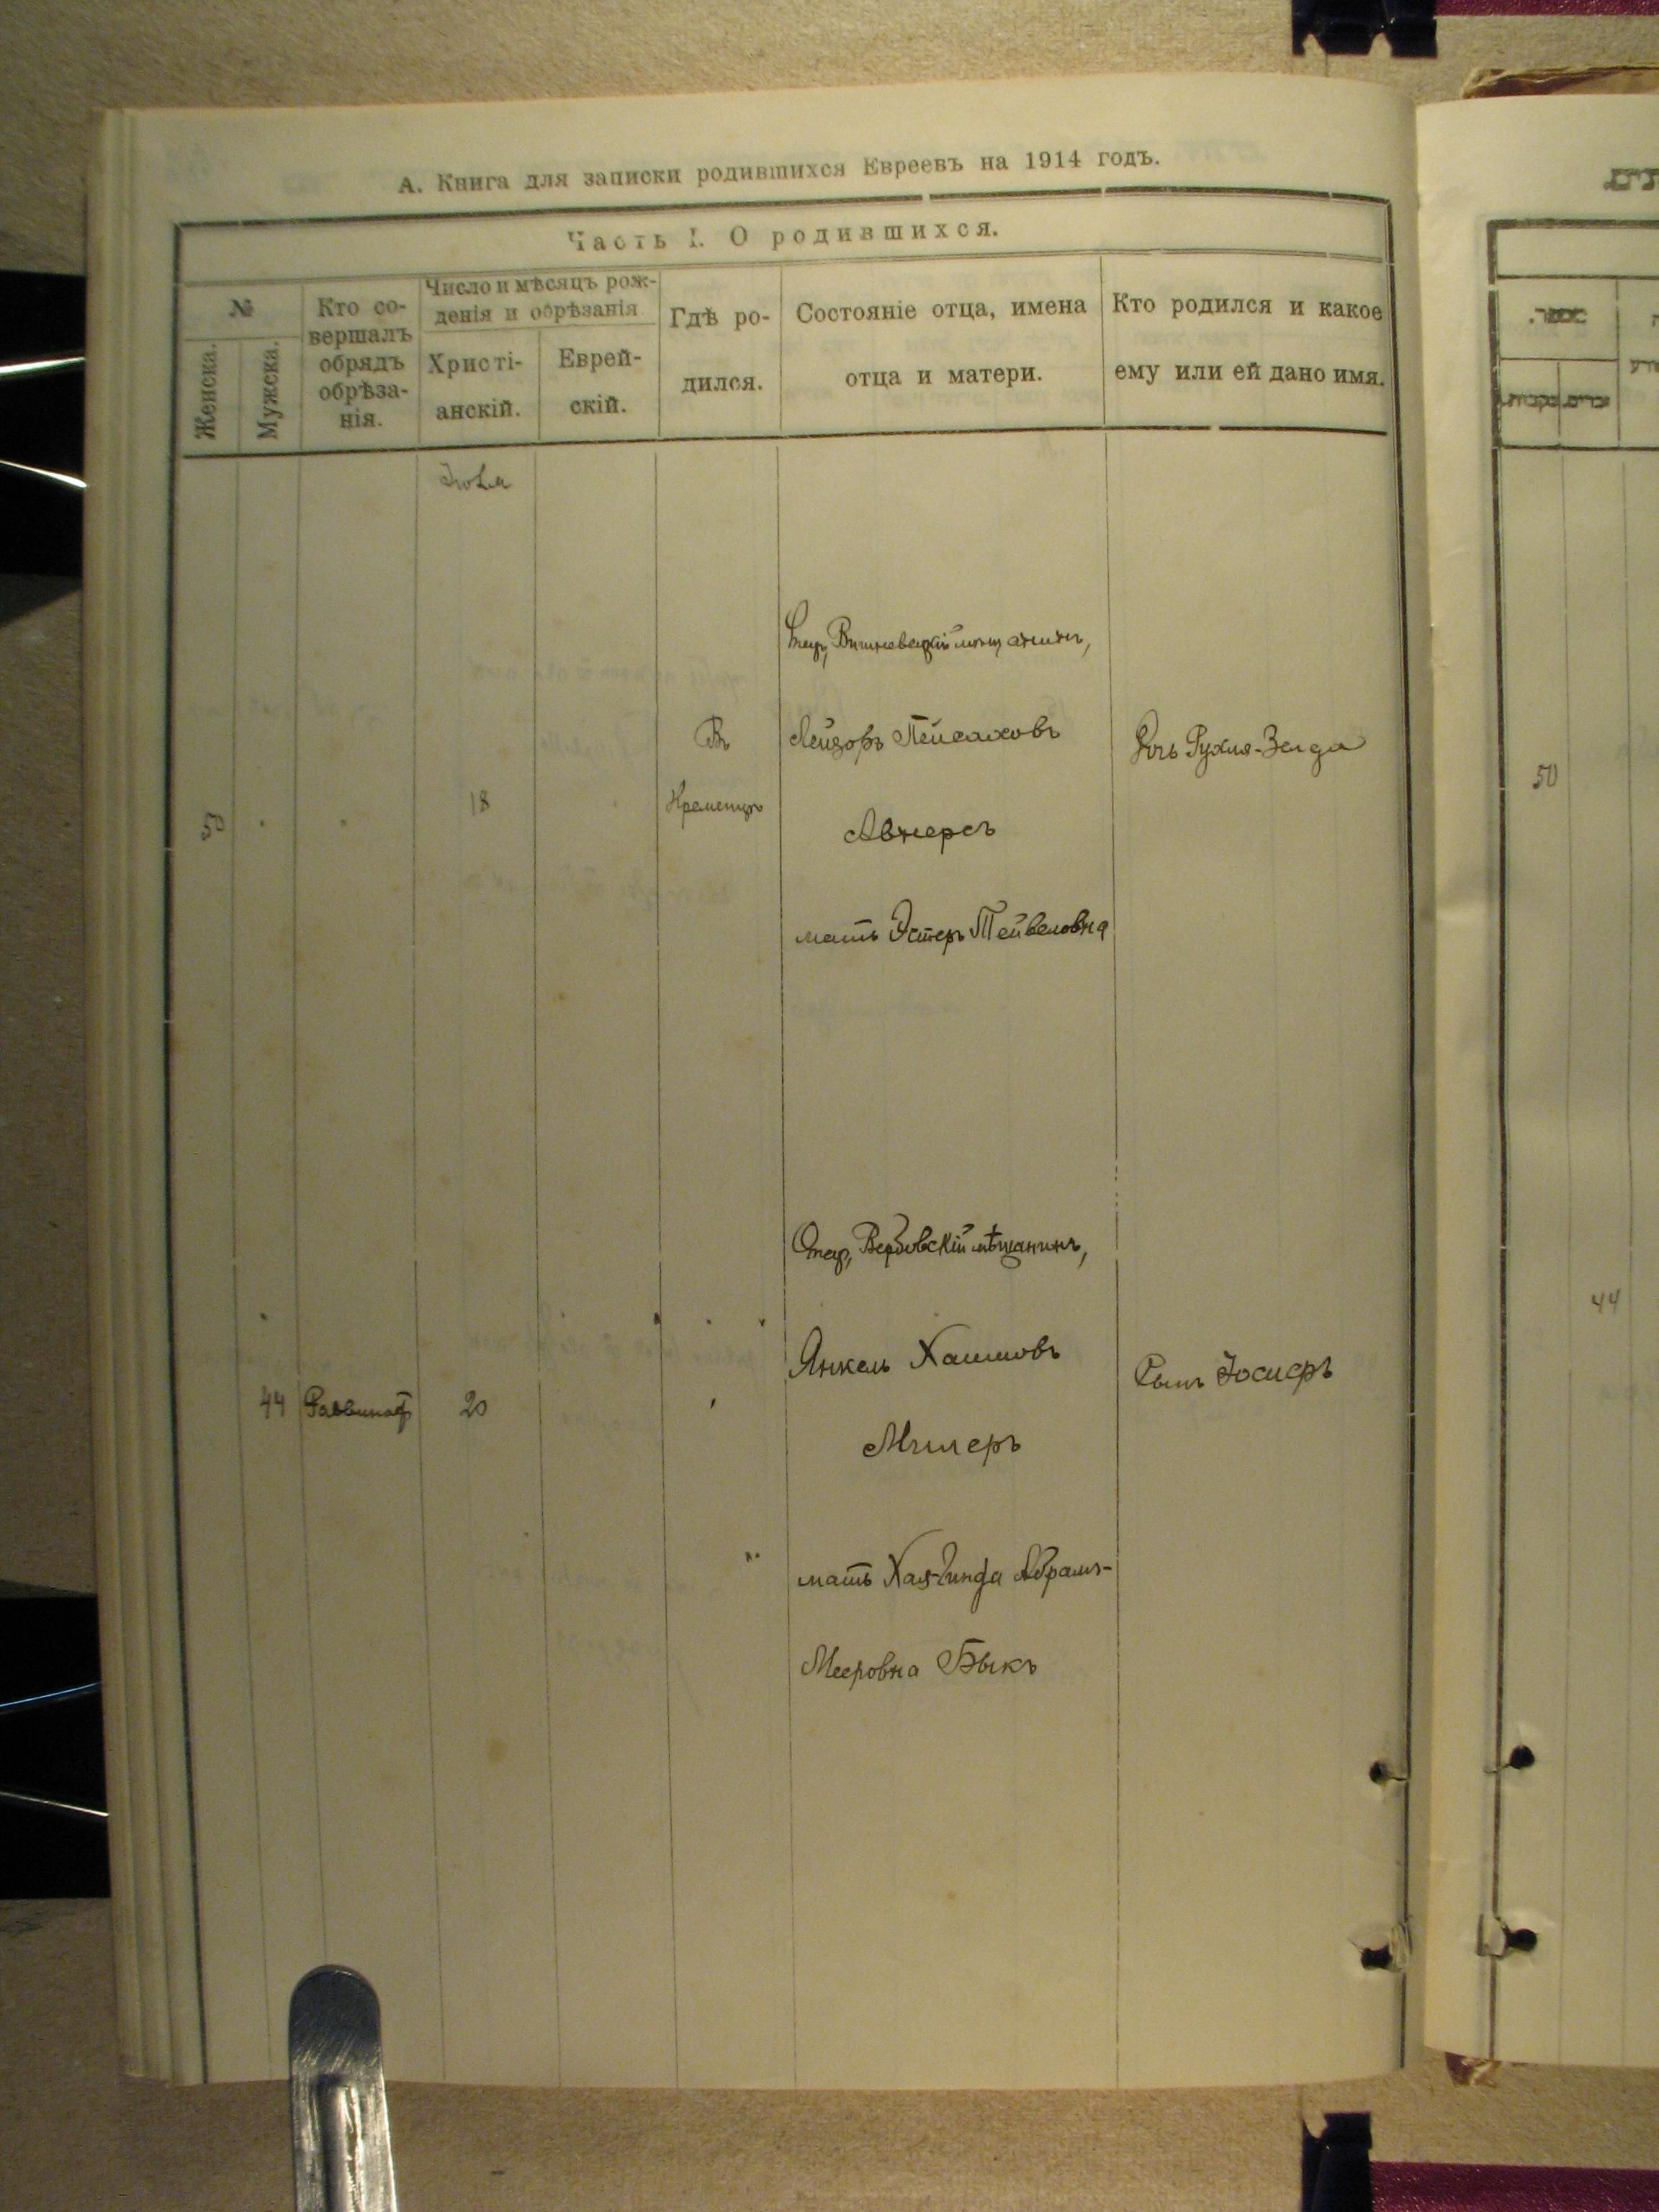 А. Книга для записки родившихся Евреевъ на 1914 годъ.
Часть I. О родившихся.
№
Женска.
Мужска.
Кто со-
вершалъ
обрядъ
обрѣза-
нія.
Число и мѣсяцъ рож-
денія и обрѣзанія
Христі-
анскій.
Еврей-
скій.
Гдѣ ро-
дился.
Состояніе отца, имена
отца и матери.
Кто родился и какое
ему или ей дано имя.
50
18
Въ
Кременцѣ
Отец, Вишневецкій мѣщанинъ,
Лейзоръ Пейсаховъ
Авнеръ
мать Эстеръ Тейвеловна
Дочь Рухля-Зелда
44
Раввинатѣ
20
Отец, Вербовскій мѣщанинъ,
Янкель Хаимовъ
Милеръ
мать Хая-Гинда Абрамъ-
Мееровна Быкъ
Сынъ
50
44